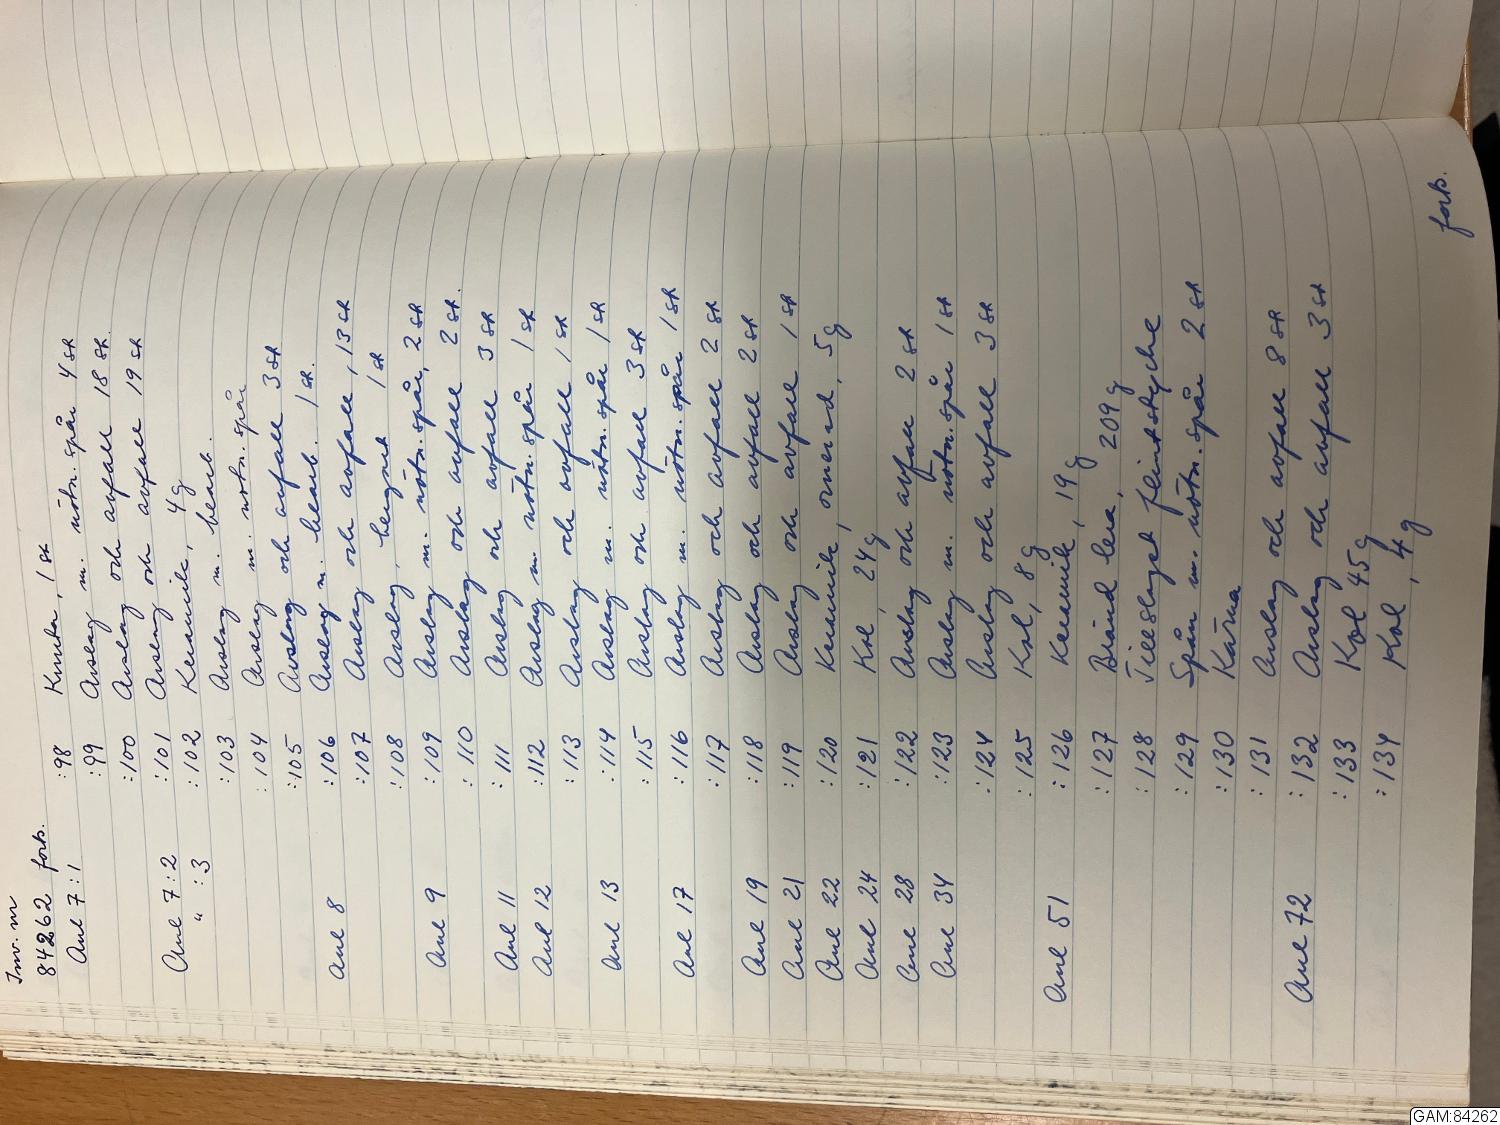 Inv. nr
84262 forts.
Anl 7:1 :98 Knuta, 1 st
:99 Avslag m. nötn. spår 4 st
:100 Avslag och avfall 18 st.
:101 Avslag och avfall 19 st
Anl 7:2 :102 Keramik, 4 g
" :3 :103 Avslag m. bearb.
:104 Avslag m. nötn. spår
:105 Avslag och avfall 3 st
:106 Avslag m. bearb. 1 st.
Anl 8 :107 Avslag och avfall, 13 st
:108 Avslag, 1 st
:109 Avslag m. nötn. spår, 2 st
Anl 9 :110 Avslag och avfall 2 st.
:111 Avslag och avfall 3 st
Anl 11 :112 Avslag m nötn. spår 1 st
Anl 12 :113 Avslag och avfall, 1 st
:114 Avslag m. nötn. spår 1 st
Anl 13 :115 Avslag och avfall 3 st
:116 Avslag m. nötn. spår 1 st
Anl 17 :117 Avslag och avfall 2 st
:118 Avslag och avfall 2 st
Anl 19 :119 Avslag och avfall 1 st
Anl 21 :120 Keramik, ornerad, 5 g
Anl 22 :121 Kol, 24 g
Anl 24 :122 Avslag och avfall 2 st
Anl 28 :123 Avslag m. nötn. spår 1 st
Anl 34 :124 Avslag och avfall 3 st
:125 Kol, 8 g
:126 Keramik, 19 g
Anl 51 :127 Bränd lera, 209 g
:128 Tillslaget flintstycke
:129 Spån m. nötn. spår 2 st
:130 Kärna
:131 Avslag och avfall 8 st
:132 Avslag och avfall 3 st
Anl 72 :133 Kol 45 g
:134 Kol, 4 g
forts.
GAM:84262